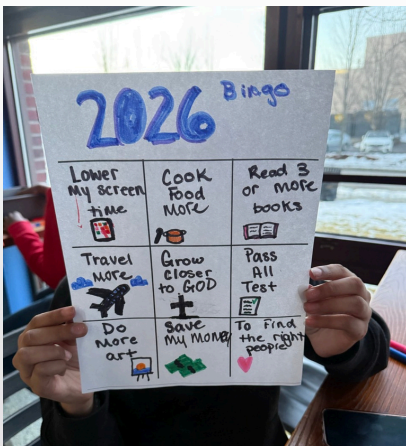 2026 Bingo
Lower
My screen
time
Cook
Food
More
Read 3
or more
books
Travel
More
Grow
Closer
to GOD
Pass
All
Test
Do
More
art
Save
My Money
To find
the right
people